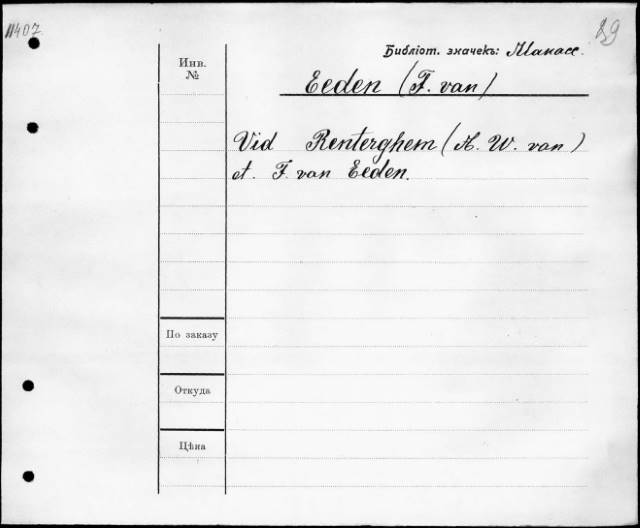 11407
29
Библіот. значекъ: Манасе.
Инв.
№
Eeden (F. van)
Vid Renterghem (A. W. van)
et. F. van Eeden.
По заказу
Откуда
Цѣна